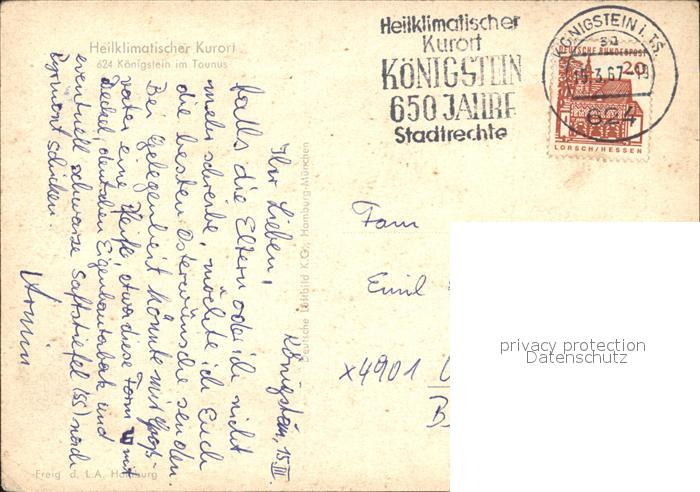 Heilklimatischer Kurort
624 Königstein im Taunus
Heilklimatischer
Kurort
KÖNIGSTEIN
650 JAHRE
Stadtrechte
KÖNIGSTEIN i. TS.
15.3.67
624
DEUTSCHE BUNDESPOST
20
LORSCH/HESSEN
Königstein, 15. III
Ihr Lieben,
falls die Eltern oder ich nicht
mehr schreibe, möchte ich Euch
die besten Osterwünsche senden.
Bei Gelegenheit könnte mir Groß-
vater eine Pfeife, etwa diese Form mit
Deckel, deutschen Eigenbautabak und
eventuell schwarze Saftstiefel (55) nach
Pyrmont schicken.
Armin
Deutsche Luftbild K.G., Hamburg-München
Freig. d. L.A. Hamburg
Fam
Emil
x4901
privacy protection
Datenschutz